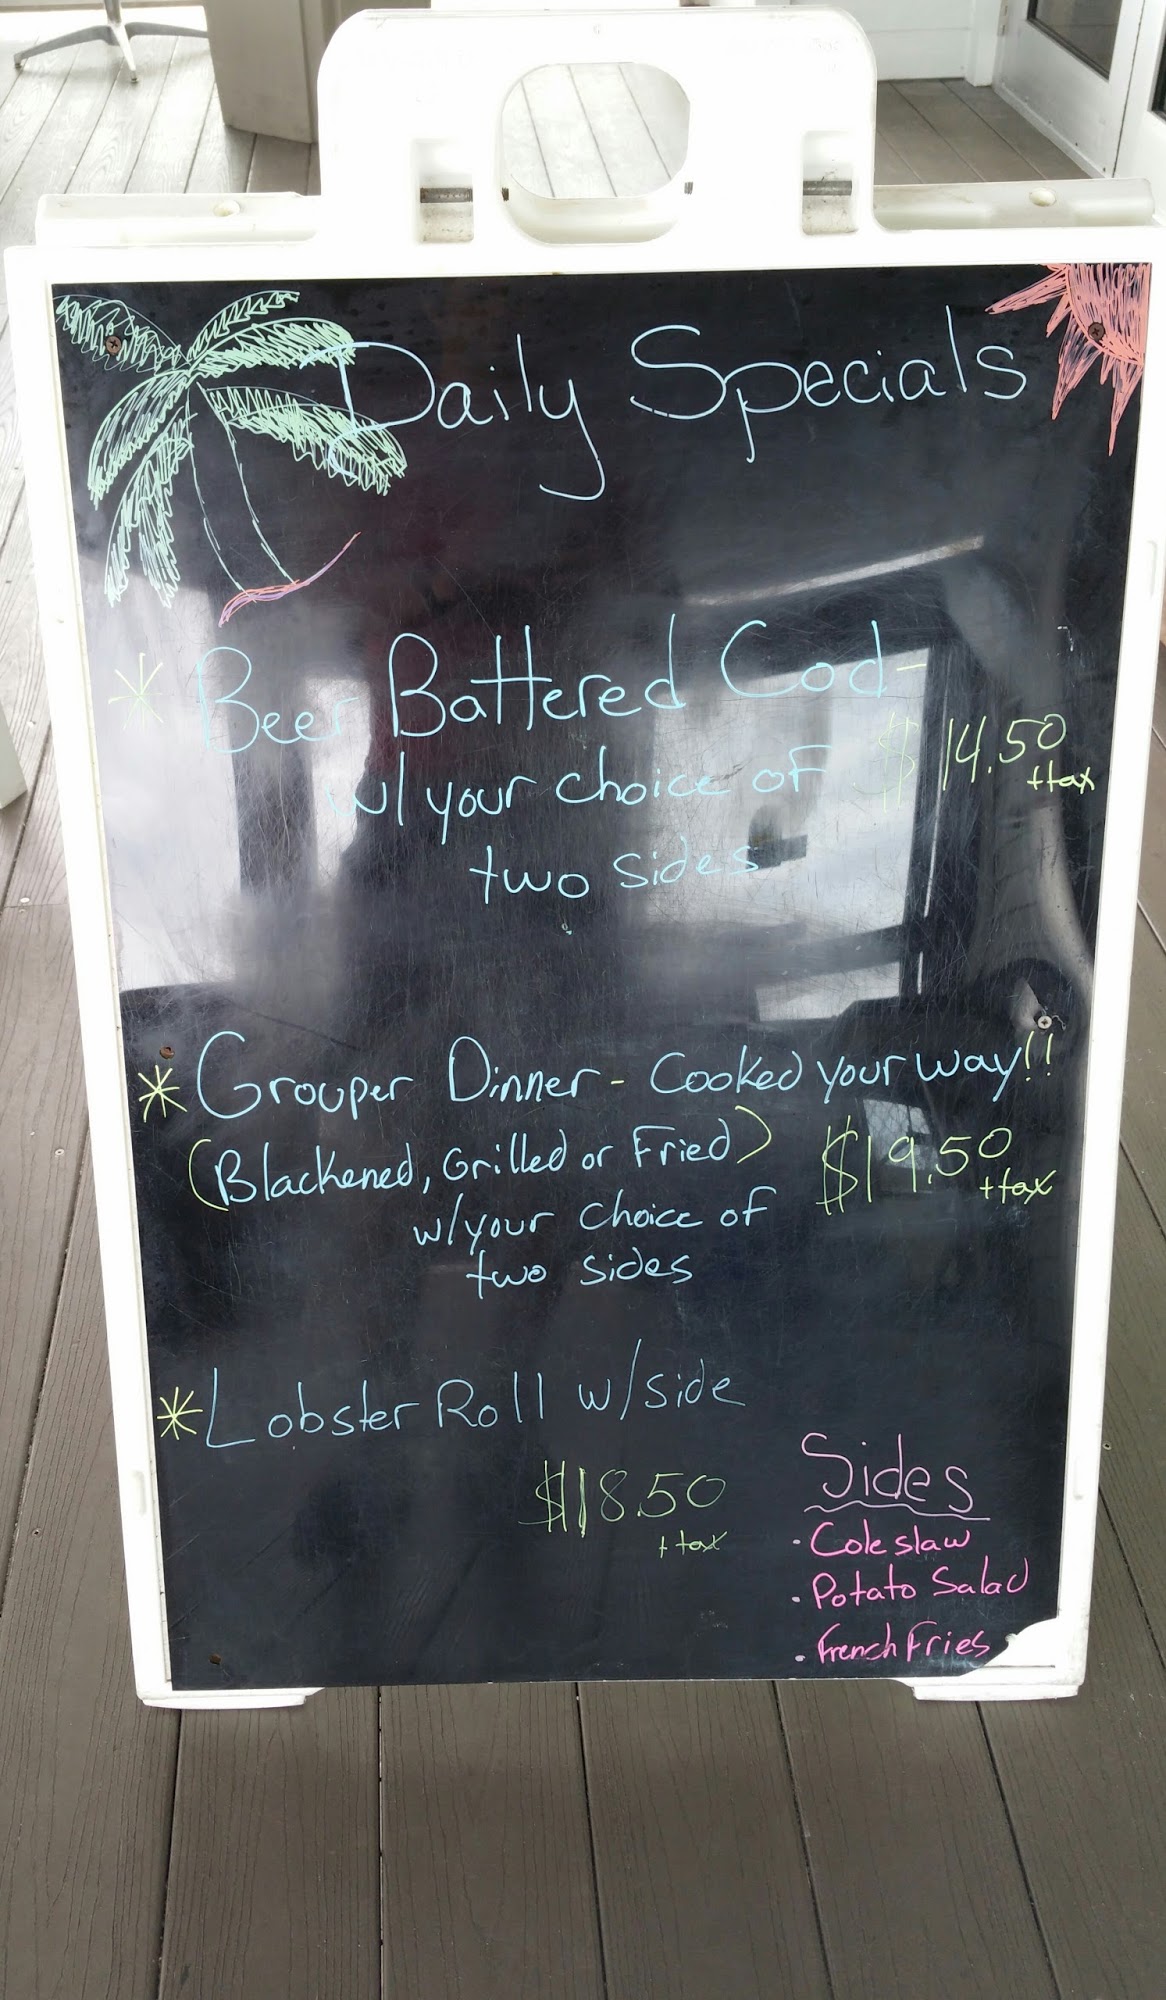 Daily Specials
* Beer Battered Cod -
w/ your choice of $14.50
+tax
two sides
* Grouper Dinner - Cooked your way!!
(Blackened, Grilled or Fried) $19.50
+tax
w/your choice of
two sides
* Lobster Roll w/side
$18.50
+tax
Sides
• Cole slaw
• Potato Salad
• French Fries